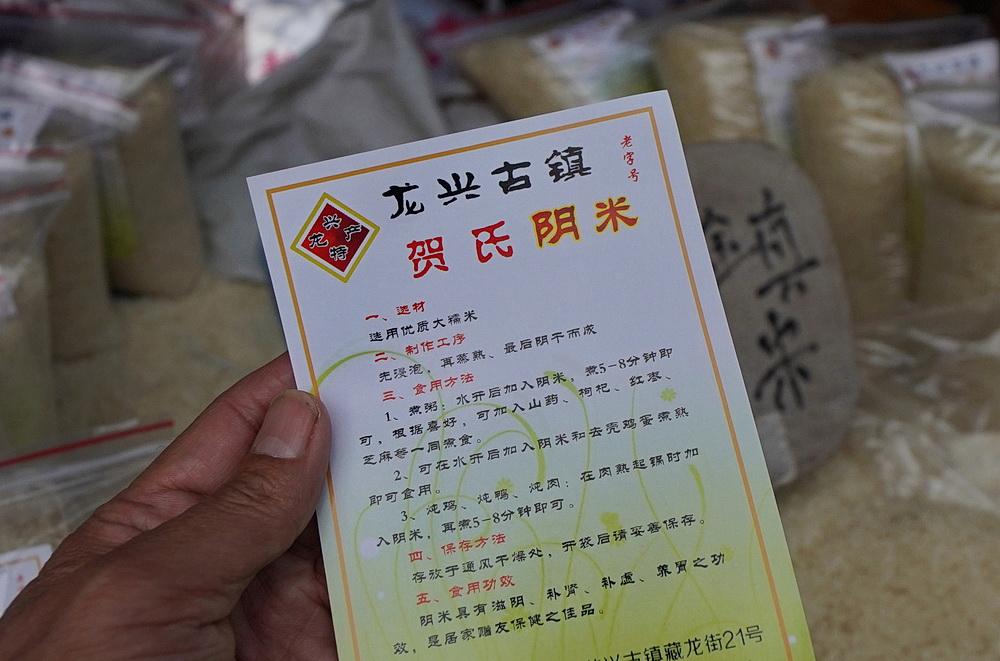 龙兴古镇
老字号
龙兴特产
贺氏阴米
一、选材
选用优质大糯米
二、制作工序
先浸泡、再蒸熟、最后阴干而成
三、食用方法
1、煮粥：水开后加入阴米，煮5-8分钟即
可，根据喜好，可加入山药、枸杞、红枣、
芝麻等一同煮食。
2、可在水开后加入阴米和去壳鸡蛋煮熟
即可食用。
3、炖鸡、炖鸭、炖肉：在肉熟起锅时加
入阴米，再煮5-8分钟即可。
四、保存方法
存放于通风干燥处，开袋后请妥善保存。
五、食用功效
阴米具有滋阴、补肾、补虚、养胃之功
效，是居家赠友保健之佳品。
兴古镇藏龙街21号